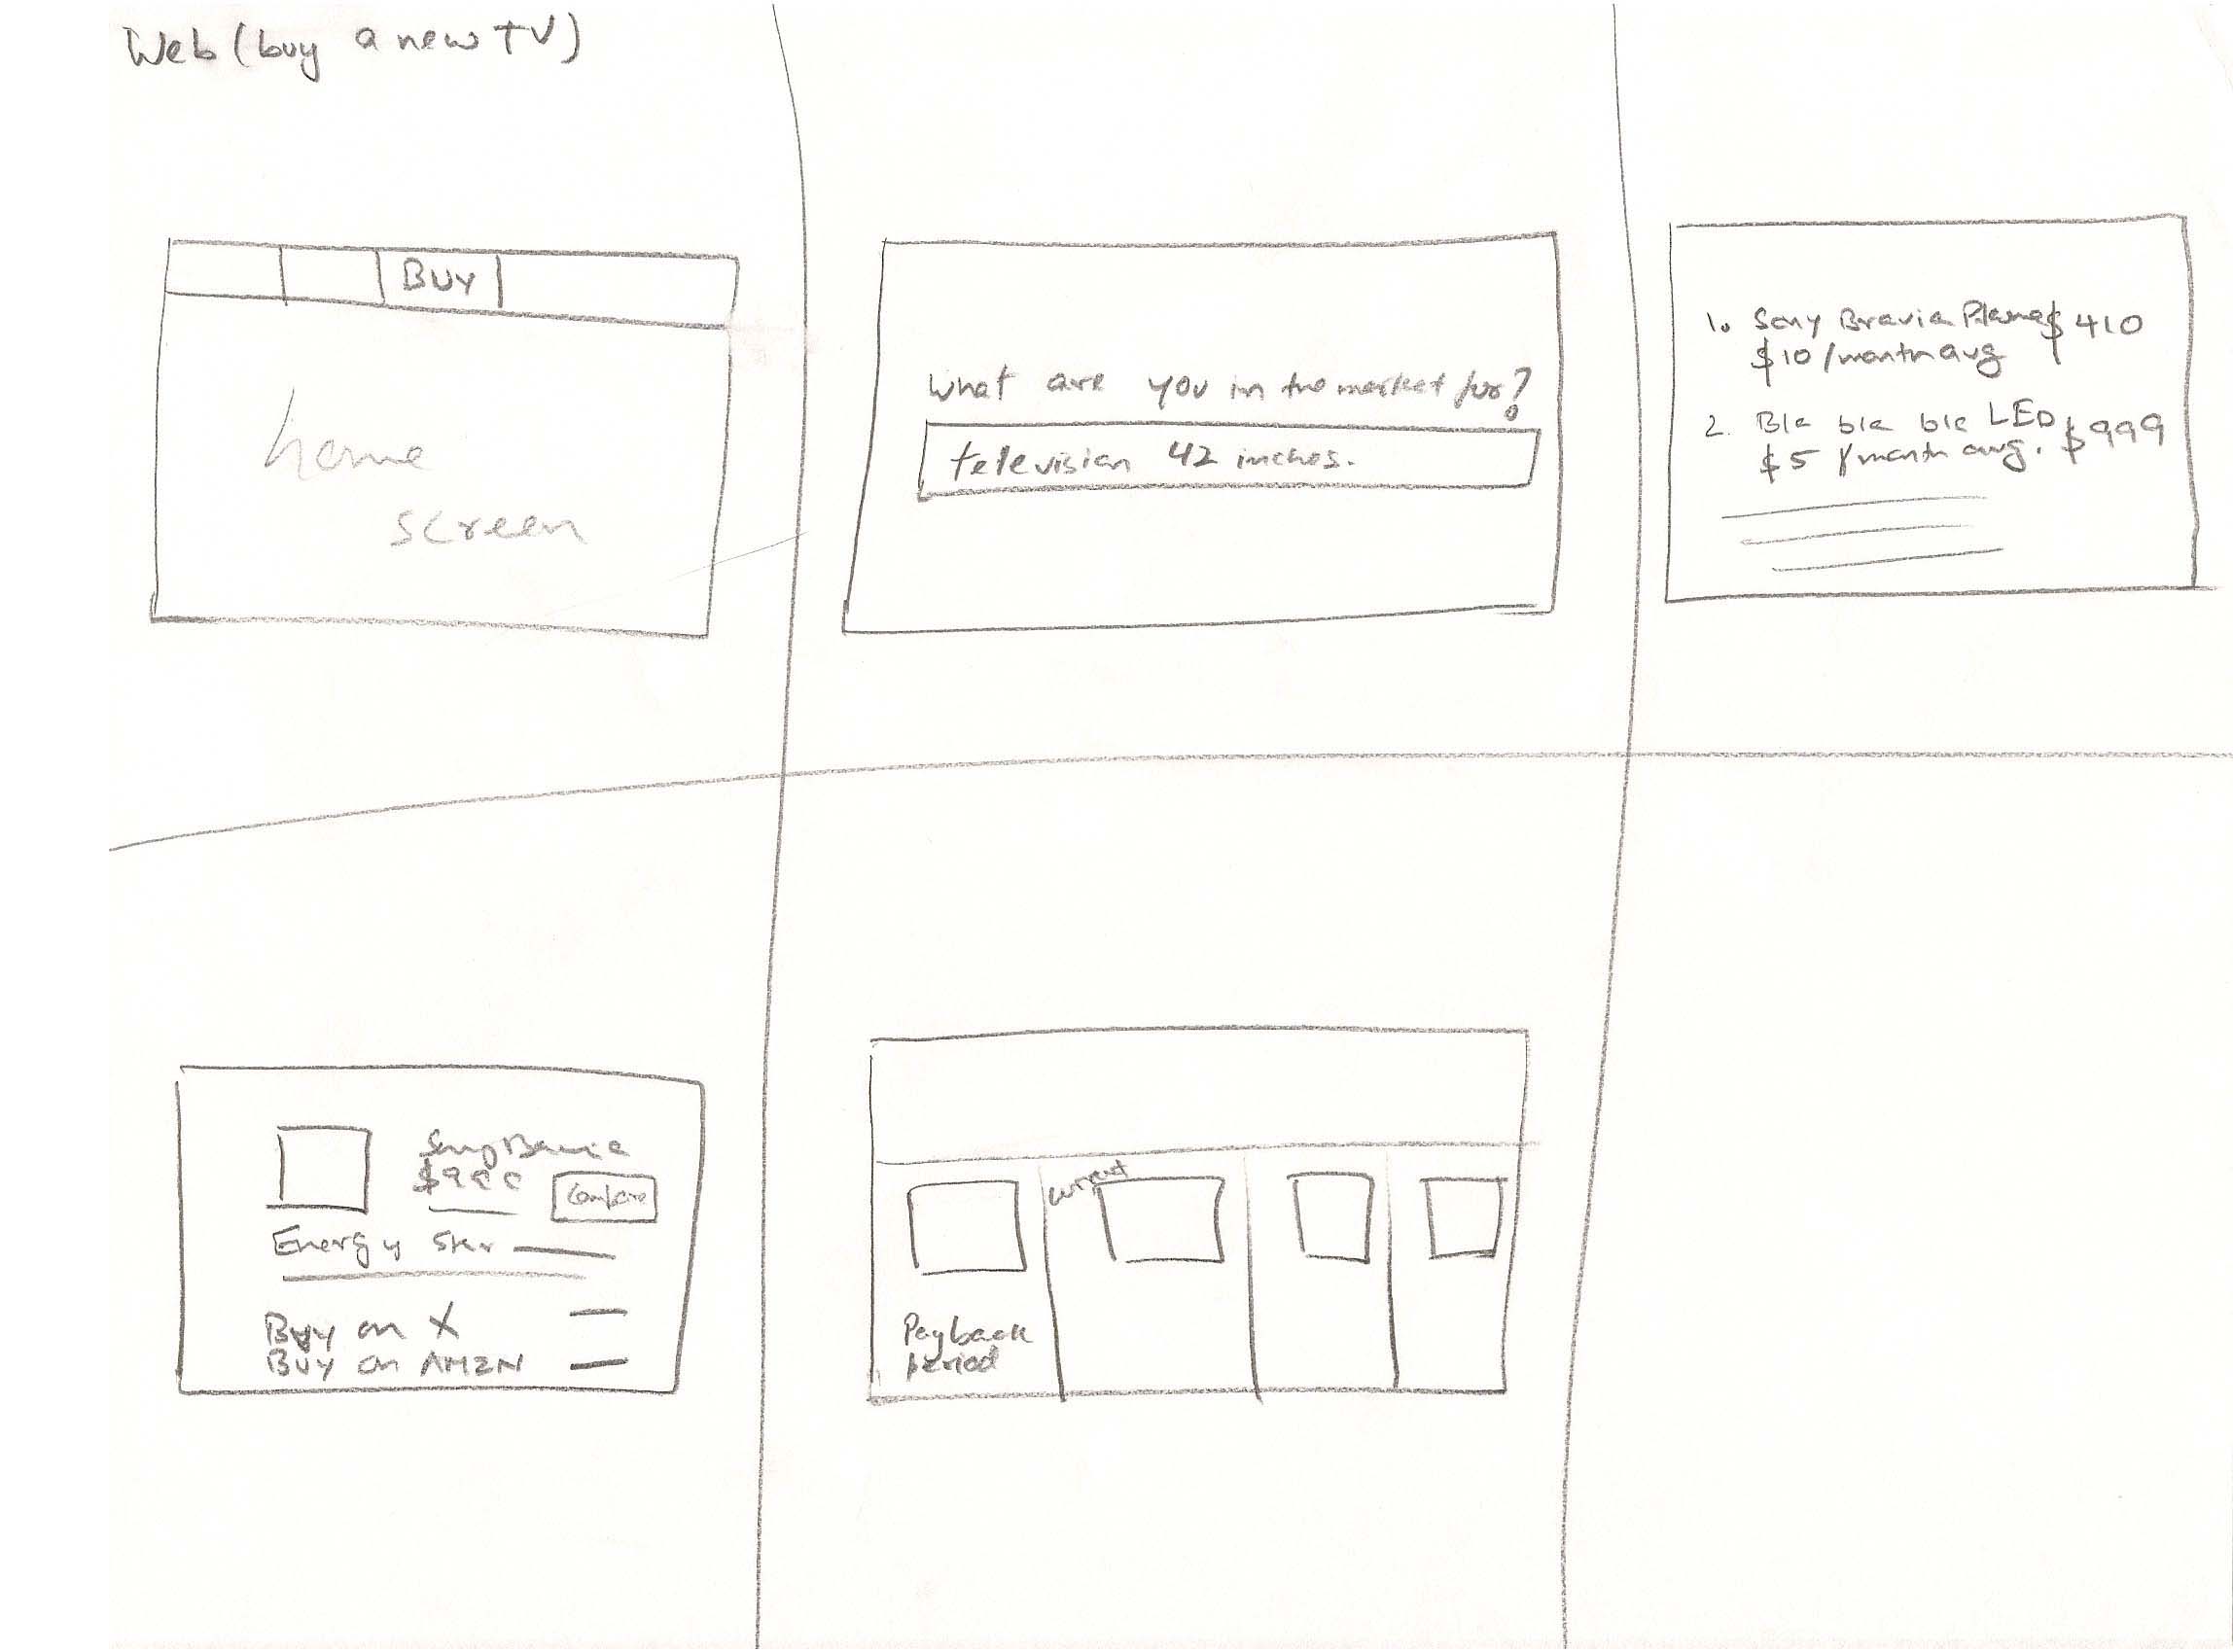 Web (buy a new TV)
BUY
home
screen
What are you in the market for?
television 42 inches.
1. Sony Bravia Plasma $410
$10/month avg
2. Bla bla bla LED $999
$5 /month avg.
Sony Bravia
Compare
Energy Star
Buy on X
Buy on AMZN
current
Payback
period